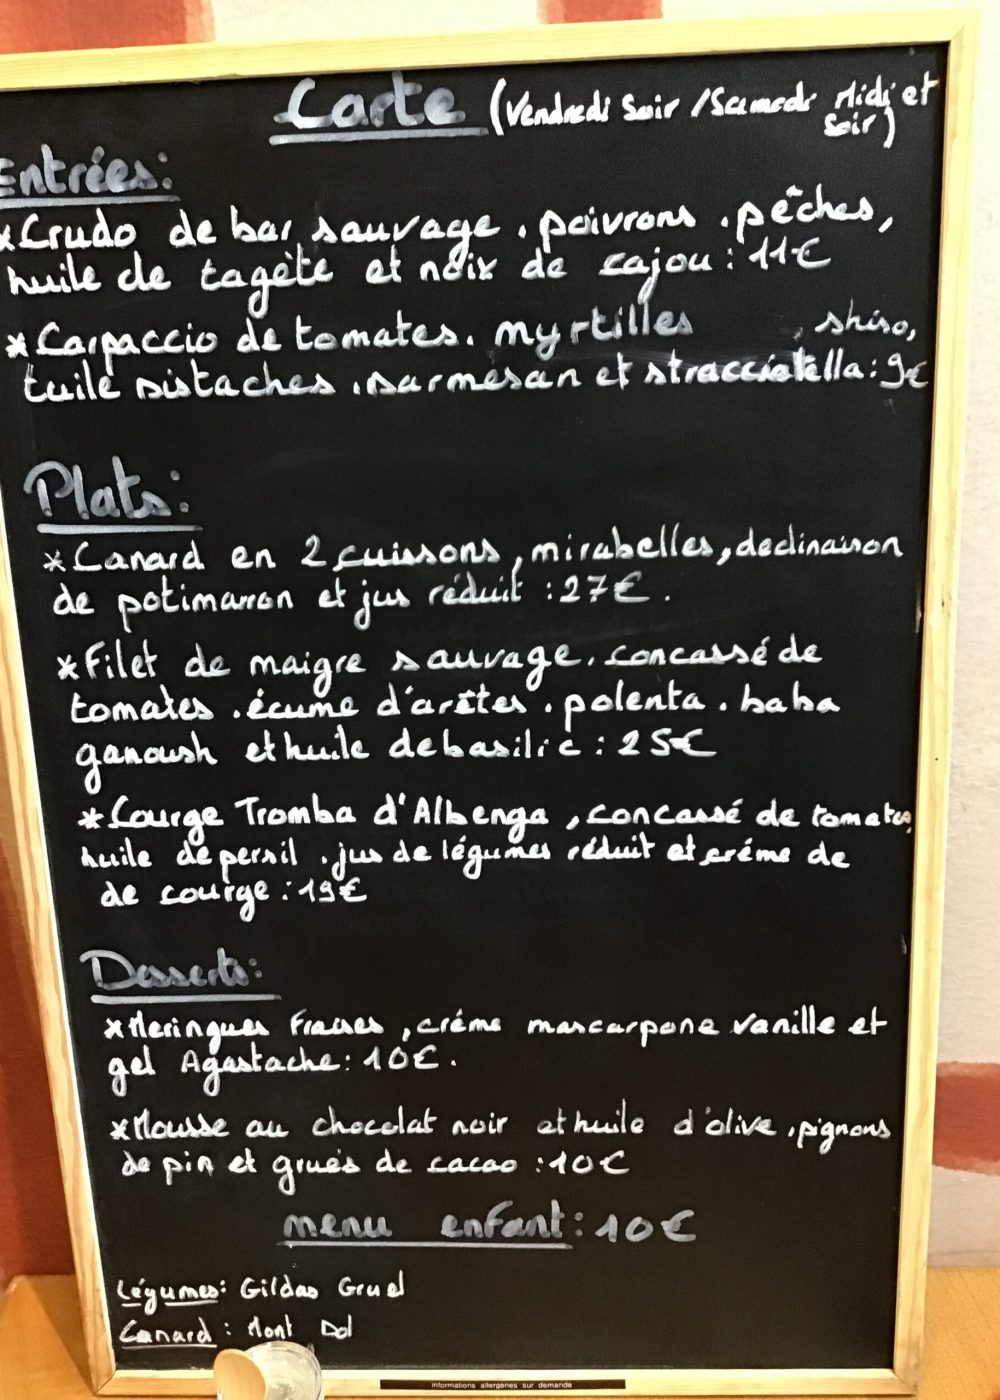 Carte (Vendredi Soir / Samedi Midi et
Soir)
Entrées:
* Crudo de bar sauvage, poivrons, pêches,
huile de tagète et noix de cajou : 11€
* Carpaccio de tomates, myrtilles , shiso,
tuile pistaches, parmesan et stracciatella : 9€
Plats:
* Canard en 2 cuissons, mirabelles, declinaison
de potimarron et jus réduit : 27€.
* Filet de maigre sauvage, concassé de
tomates, écume d'arêtes, polenta, baba
ganoush et huile de basilic : 25€
* Courge Tromba d'Albenga, concassé de tomates,
huile de persil, jus de légumes réduit et créme de
de courge : 19€
Desserts:
* Meringues Fraises, créme mascarpone vanille et
gel Agastache : 10€.
* Mousse au chocolat noir et huile d'olive, pignons
de pin et grués de cacao : 10€
menu enfant : 10€
Légumes : Gildas Gruel
Canard : Mont Dol
Informations allergenes sur demande